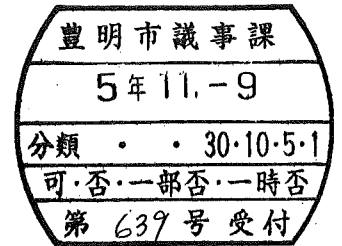 豊明市議事課
5年11.-9
分類 ・ ・ 30・10・5・1
可・否・一部否・一時否
第 639 号 受付